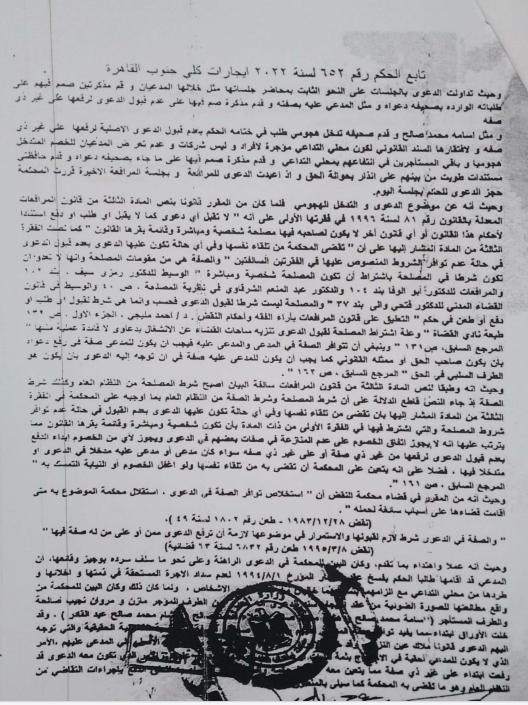 تابع الحكم رقم ٦٥٢ لسنة ٢٠٢٢ ايجارات كلي جنوب القاهرة
وحيث تداولت الدعوى بالجلسات على النحو الثابت بمحاضر جلساتها مثل خلالها المدعيان و قدم مذكرتين صمم فيهم على
طلباته الوارده بصحيفه دعواه و مثل المدعي عليه بصفته و قدم مذكرة صم فيها على عدم قبول الدعوى لرفعها على غير ذي
صفه
و مثل اسامه محمد صالح و قدم صحيفه تدخل هجومي طلب في ختامه الحكم بعدم قبول الدعوى الاصلية لرفعها على غير ذي
صفه و لافتقارها السند القانوني لكون محلي التداعي مؤجرة لأفراد و ليس شركات و عدم تعرض المدعيان للخصم المتدخل
هجوميا و باقي المستأجرين في انتفاعهم بمحلي التداعي و قدم مذكرة صمم فيها على ما جاء بصحيفه دعواه و قدم حافظتي
مستندات طويت من بينهم على انذار بحوالة الحق و اذ اعيدت الدعوى للمرافعة و بجلسة المرافعة الاخيرة قررت المحكمة
حجز الدعوى للحكم بجلسة اليوم.
وحيث أنه عن موضوع الدعوى و التدخل الهجومي فلما كان من المقرر قانونا بنص المادة الثالثة من قانون المرافعات
المعدلة بالقانون رقم ٨١ لسنة ١٩٩٦ في فقرتها الأولى على أنه " لا تقبل أي دعوى كما لا يقبل أي طلب أو دفع استنادا
لأحكام هذا القانون أو أي قانون آخر لا يكون لصاحبه فيها مصلحة شخصية ومباشرة وقائمة يقرها القانون " كما نصت الفقرة
الثالثة من المادة المشار إليها على أن " تقضي المحكمة من تلقاء نفسها وفي أي حالة تكون عليها الدعوى بعدم قبول الدعوى
في حالة عدم توافر الشروط المنصوص عليها في الفقرتين السالفتين " والصفة هي من مقومات المصلحة وانها لا تعدو ان
تكون شرطا في المصلحة باشتراط أن تكون المصلحة شخصية ومباشرة " الوسيط للدكتور رمزي سيف ، بند ١٠٢
و المرافعات للدكتور أبو الوفا بند ١٠٤ والدكتور عبد المنعم الشرقاوي في نظرية المصلحة ، ص ٤٠ والوسيط في قانون
القضاء المدني للدكتور فتحي والي بند ٣٧ " والمصلحة ليست شرطا لقبول الدعوى فحسب وانما هي شرط لقبول أي طلب او
دفع أو طعن في حكم " التعليق على قانون المرافعات بآراء الفقه وأحكام النقض . د / احمد مليجي ، الجزء الاول ، ص ١٣١
طبعة نادي القضاة " وعلة اشتراط المصلحة لقبول الدعوى تنزيه ساحات القضاء عن الانشغال بدعاوى لا فائدة عملية منها "
المرجع السابق، ص ١٣١ " وينبغي أن تتوافر الصفة في المدعي والمدعى عليه فيجب ان يكون للمدعى صفة في رفع دعواه
بان يكون صاحب الحق أو ممثله القانوني كما يجب أن يكون للمدعى عليه صفة في ان توجه إليه الدعوى بان يكون هو
الطرف السلبي في الحق " المرجع السابق ، ص ١٦٢ " .
وحيث انه وطبقا لنص المادة الثالثة من قانون المرافعات سالفة البيان أصبح شرط المصلحة من النظام العام وكذلك شرط
الصفة إذ جاء النص قاطع الدلالة على أن شرط المصلحة وشرط الصفة من النظام العام بما اوجبه على المحكمة في الفقرة
الثالثة من المادة المشار إليها بان تقضى من تلقاء نفسها وفي أي حالة تكون عليها الدعوى بعدم القبول في حالة عدم توافر
شروط المصلحة والتي اشترط فيها في الفقرة الأولى من ذات المادة بأن تكون شخصية ومباشرة وقائمة يقرها القانون مما
يترتب عليها انه لا يجوز اتفاق الخصوم على عدم المنازعة في صفات بعضهم في الدعوى ويجوز لأي من الخصوم ابداء الدفع
بعدم قبول الدعوى لرفعها من غير ذي صفة أو على غير ذي صفه سواء كان مدعى أو مدعى عليه مدخلا في الدعوى او
متدخلا فيها ، فضلا على انه يتعين على المحكمة أن تقضى به من تلقاء نفسها ولو اغفل الخصوم أو النيابة التمسك به "
المرجع السابق ، ص ١٦١ " .
وحيث انه من المقرر في قضاء محكمة النقض أن " استخلاص توافر الصفة في الدعوى . استقلال محكمة الموضوع به متى
أقامت قضاءها على أسباب سائغة لحمله " .
(نقض ١٩٨٣/١٢/٢٨ - طعن رقم ١٨٠٢ لسنة ٤٩ ).
" والصفة في الدعوى شرط لازم لقبولها والاستمرار في موضوعها لازمة ان ترفع الدعوى ممن أو على من له صفة فيها "
(نقض ١٩٩٥/٣/٨ طعن رقم ٦٨٣٢ لسنة ٦٣ قضائية)
وحيث أنه عملا واهتداء بما تقدم، وكان البين للمحكمة في الدعوى الراهنة وعلى نحو ما سلف سرده بوجيز وقائعها، ان
المدعي قد أقامها طالبا الحكم بفسخ عقد المؤرخ ١٩٩٤/٨/١ لعدم سداد الاجرة المستحقة في ذمتها و اخلائها و
طردها من محلي التداعي مع الزامهم الاشخاص . ولما كان ذلك وكان البين للمحكمة من
واقع مطالعتها للصورة الضوئية من عقد الطرف المؤجر مازن و مروان نجيب صالحة
والطرف المستأجر ( اسامة محمد صالح محمد صالح عبد القادر) . وقد
خلت الأوراق ابتداء مما يفيد توافر الحقيقية والتي توجه
اليهم الدعوى قانونا ملاك عين في المدعى عليهم، الأمر
الذي لا يكون للمدعي أحقية في تكون معه الدعوى قد
رفعت ابتداء على غير ذي صفة مما يتعين معه بإجراءات التقاضي من
النظام العام وهو ما تقضى به المحكمة كما سيلي بالمنطوق